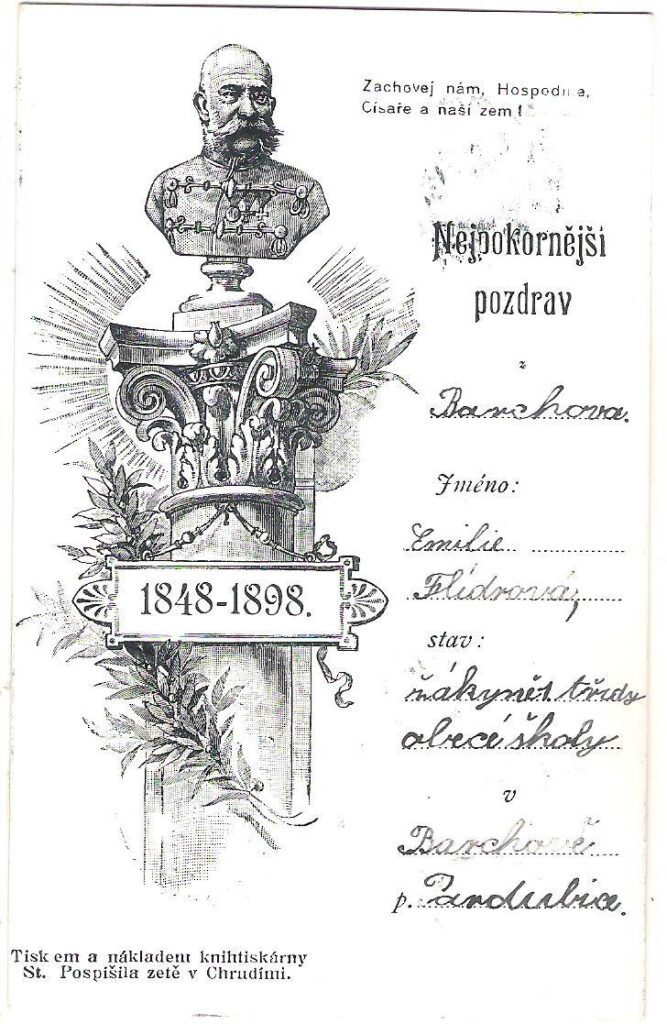 Zachovej nám, Hospodine,
Císaře a naši zem!
Nejpokornější
pozdrav
z
Barchova.
Jméno:
Emilie
Flídrová,
stav:
žákyně 1. třídy
obecé školy
v
Barchově
p. Pardubice.
1848-1898.
Tiskem a nákladem knihtiskárny
St. Pospíšila zetě v Chrudími.